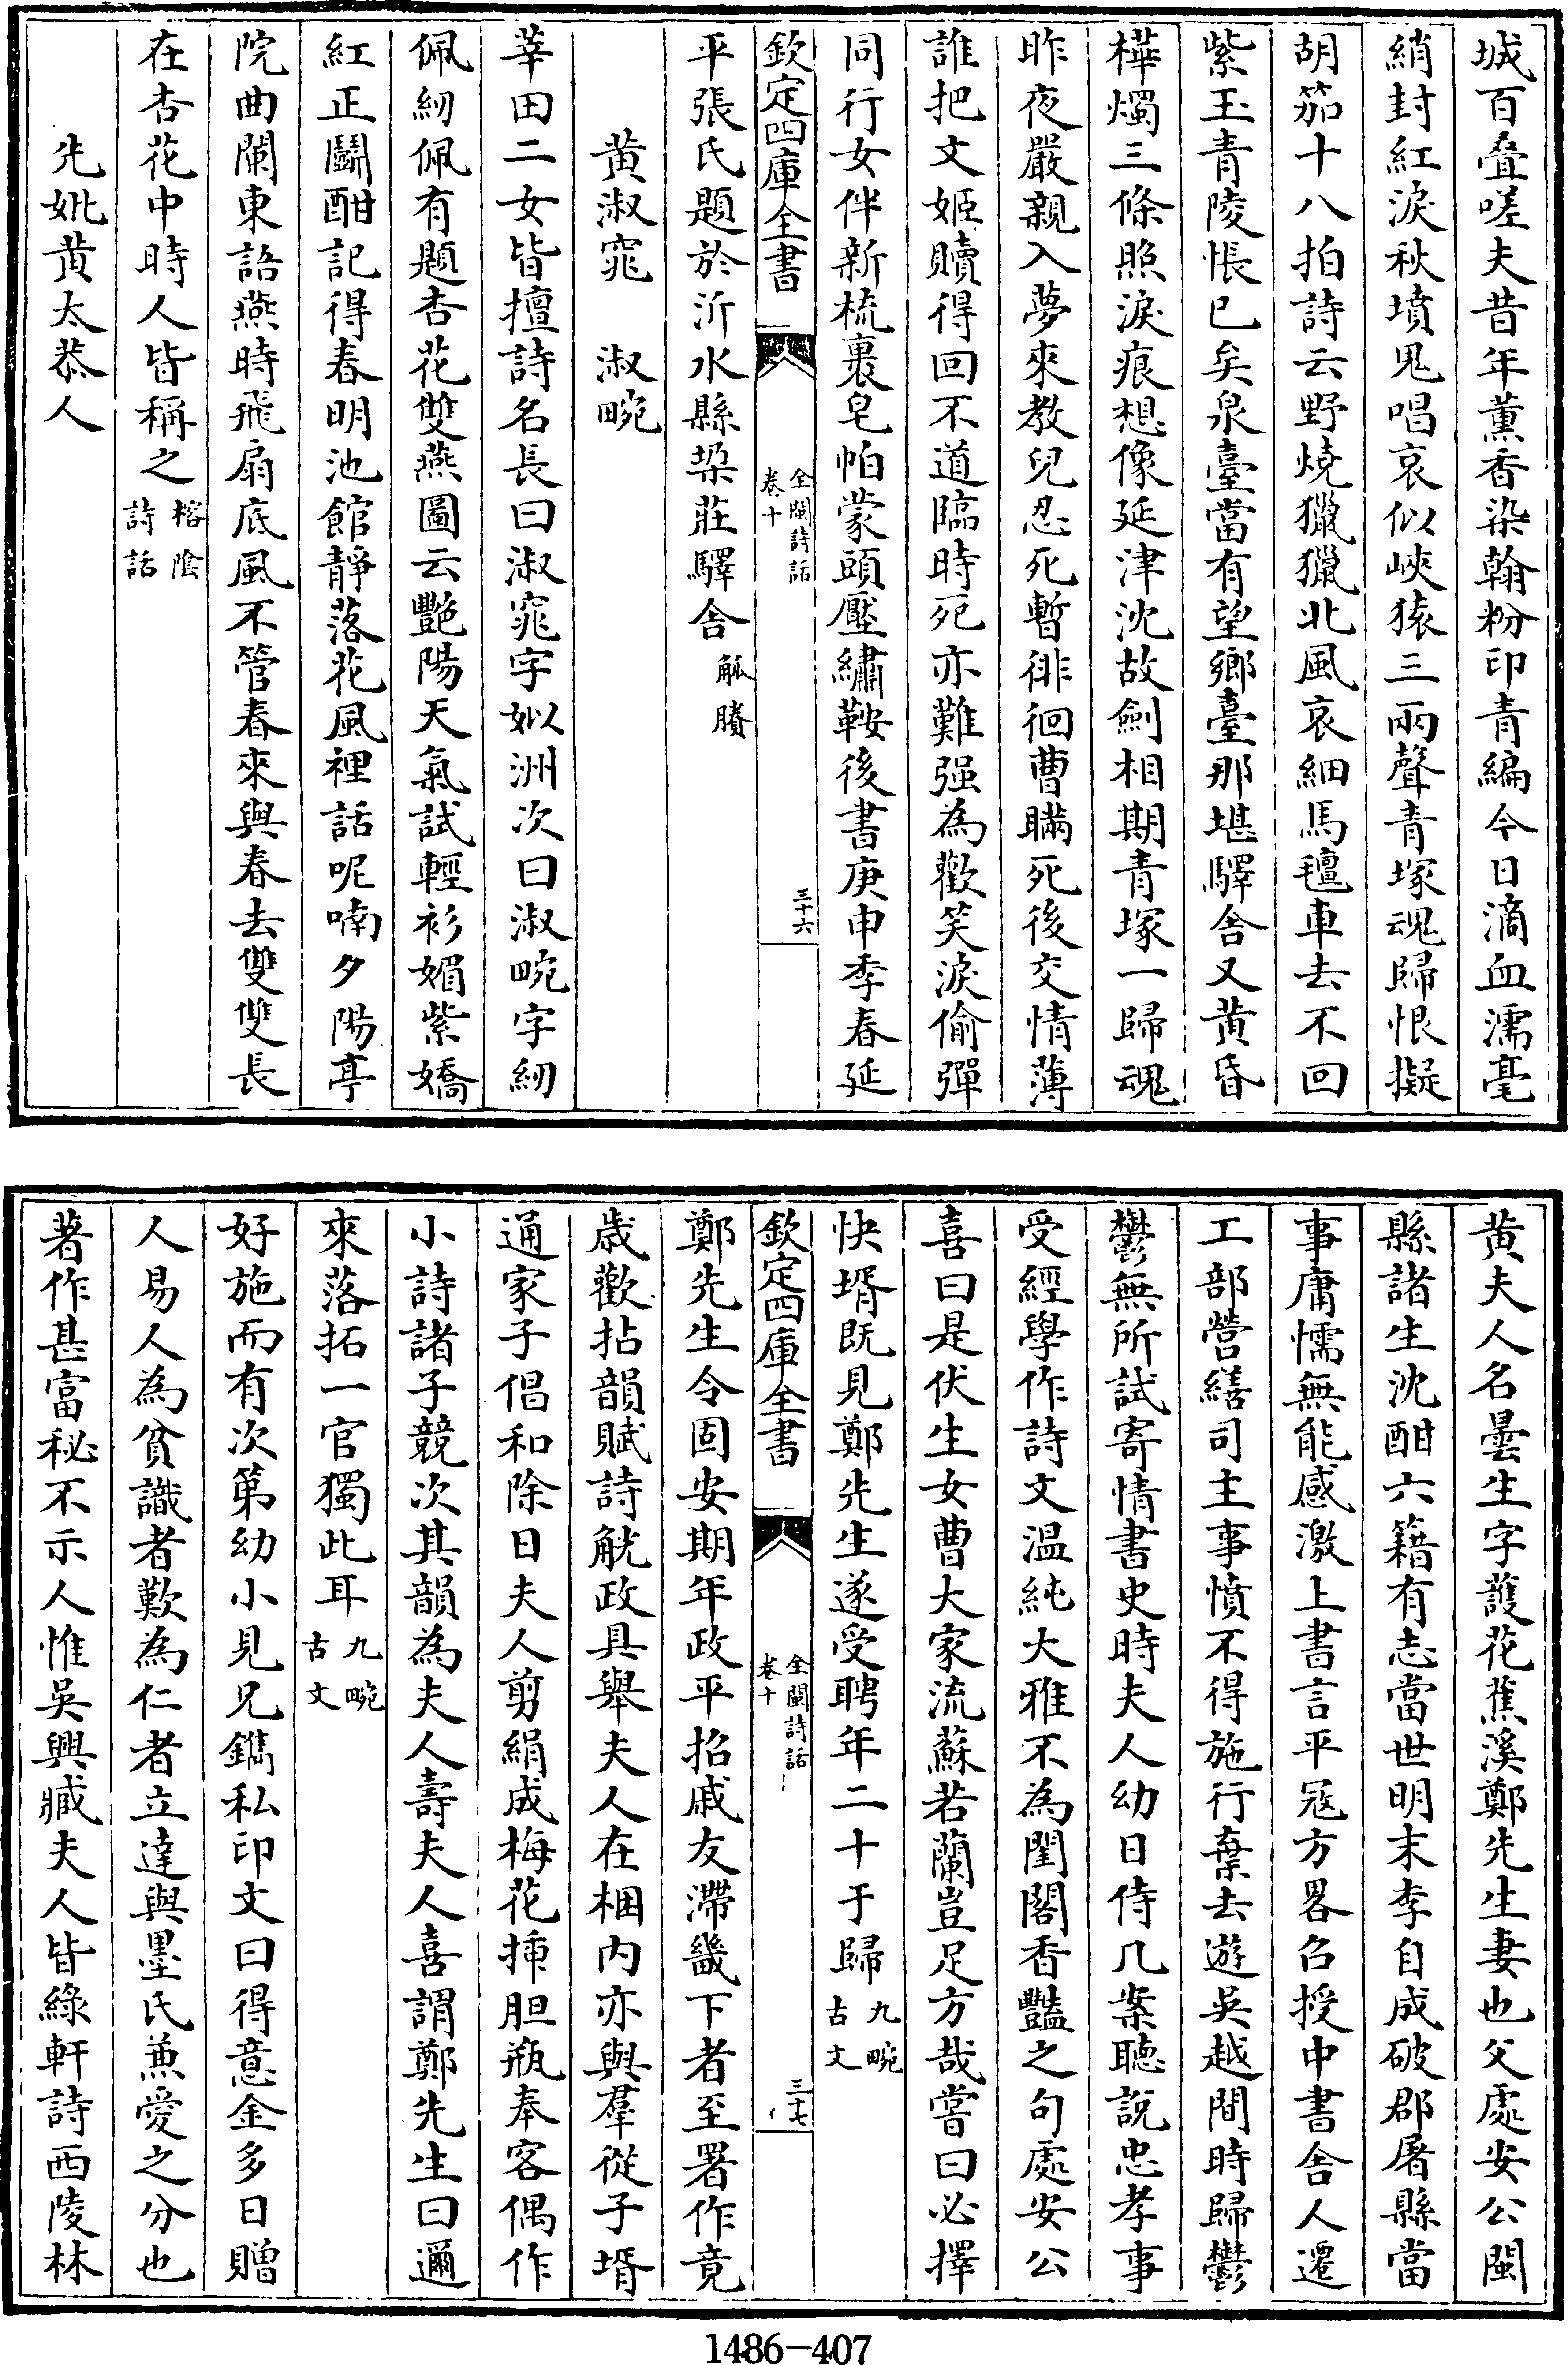 城百疊嗟夫昔年薰香染翰粉印青編今日滴血濡毫
綃封紅淚秋墳鬼唱哀似峽猿三兩聲青塚魂歸恨擬
胡笳十八拍詩云野燒獵獵北風哀細馬氊車去不回
紫玉青陵悵已矣泉臺當有望鄉臺那堪驛舍又黄昏
樺燭三條照淚痕想像延津沈故劍相期青塚一歸魂
昨夜嚴親入夢來教兒忍死暫徘徊曹瞞死後交情薄
誰把文姬贖得回不道臨時死亦難强為歡笑淚偷彈
同行女伴新梳裹皂帕蒙頭壓繡鞍後書庚申季春延
欽定四庫全書
全閩詩話
卷十
三十六
平張氏題於沂水縣垜莊驛舍觚賸
黄淑窕 淑畹
莘田二女皆擅詩名長曰淑窕字姒洲次曰淑畹字紉
佩紉佩有題杏花雙燕圖云艷陽天氣試輕衫媚紫嬌
紅正鬬酣記得春明池館靜落花風裡話呢喃夕陽亭
院曲闌東語燕時飛扇底風不管春來與春去雙雙長
在杏花中時人皆稱之榕陰詩話
先妣黄太恭人
黄夫人名曇生字護花蕉溪鄭先生妻也父處安公閩
縣諸生沈酣六籍有志當世明末李自成破郡屠縣當
事庸懦無能感激上書言平冦方畧召授中書舍人遷
工部營繕司主事憤不得施行棄去遊吳越間時歸鬱
鬱無所試寄情書史時夫人幼日侍几案聽說忠孝事
受經學作詩文温純大雅不為閨閣香豔之句處安公
喜曰是伏生女曹大家流蘇若蘭豈足方哉嘗曰必擇
快壻既見鄭先生遂受聘年二十于歸九畹古文
欽定四庫全書
全閩詩話
卷十
三十七
鄭先生令固安期年政平招戚友滯畿下者至署作竟
歳歡拈韻賦詩觥政具舉夫人在梱内亦與羣從子壻
通家子倡和除日夫人剪絹成梅花揷胆瓶奉客偶作
小詩諸子競次其韻為夫人壽夫人喜謂鄭先生曰邇
來落拓一官獨此耳九畹古文
好施而有次第幼小見兄鐫私印文曰得意金多日贈
人易人為貧識者歎為仁者立達與墨氏兼愛之分也
著作甚富秘不示人惟吳興臧夫人皆綠軒詩西陵林
1486-407